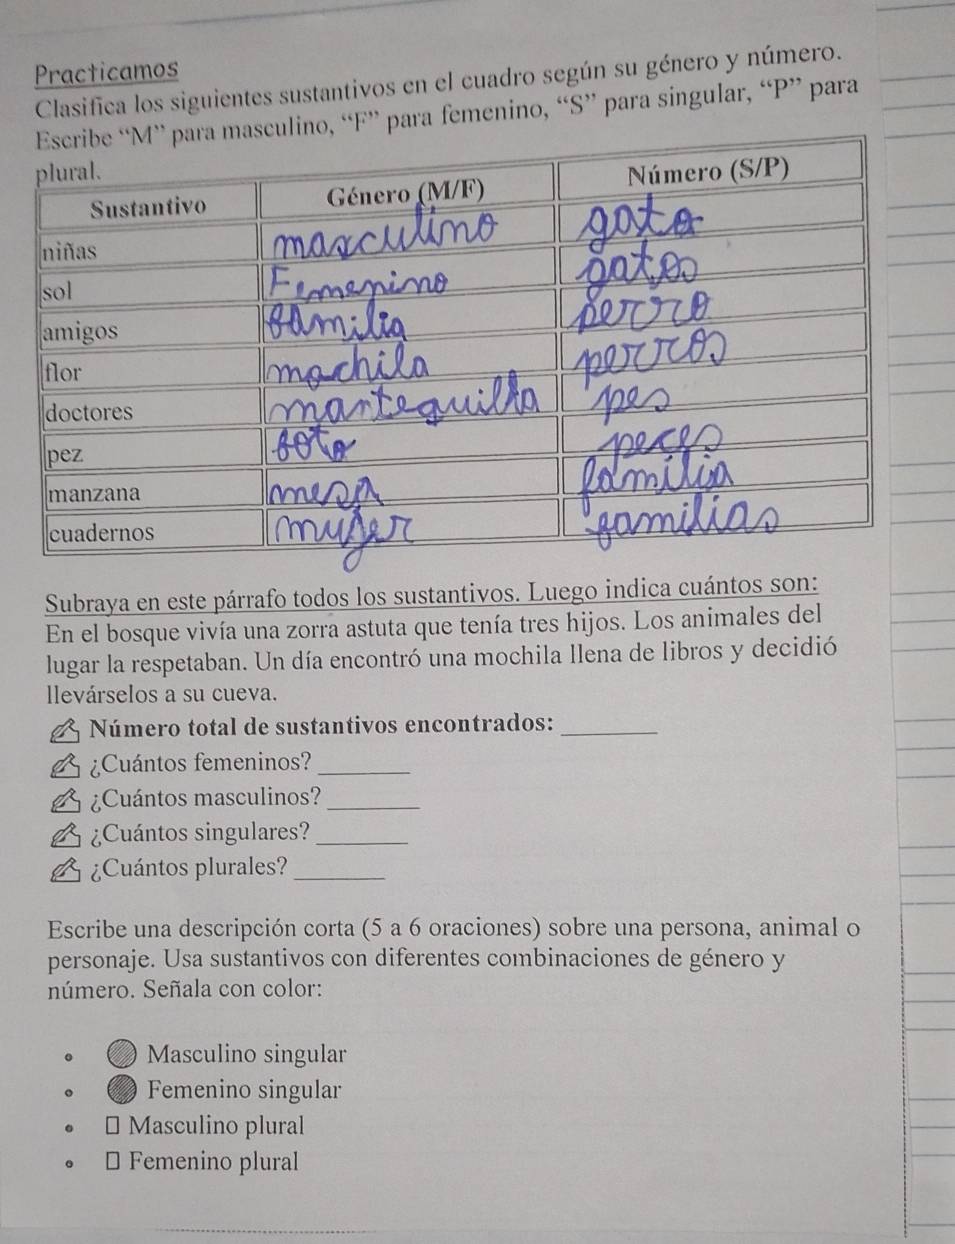 Practicamos
Clasifica los siguientes sustantivos en el cuadro según su género y número.
Escribe “M” para masculino, “F” para femenino, “S” para singular, “P” para
plural.
Sustantivo Género (M/F) Número (S/P)
niñas masculino gato
sol Femenino gatos
amigos familia perro
flor mochila perros
doctores mantequilla pes
pez bota peces
manzana mesa familia
cuadernos mujer familias
Subraya en este párrafo todos los sustantivos. Luego indica cuántos son:
En el bosque vivía una zorra astuta que tenía tres hijos. Los animales del
lugar la respetaban. Un día encontró una mochila llena de libros y decidió
llevárselos a su cueva.
✍ Número total de sustantivos encontrados: ________
✍ ¿Cuántos femeninos? ________
✍ ¿Cuántos masculinos? ________
✍ ¿Cuántos singulares? ________
✍ ¿Cuántos plurales? ________
Escribe una descripción corta (5 a 6 oraciones) sobre una persona, animal o
personaje. Usa sustantivos con diferentes combinaciones de género y
número. Señala con color:
• Masculino singular
• Femenino singular
• Masculino plural
• Femenino plural